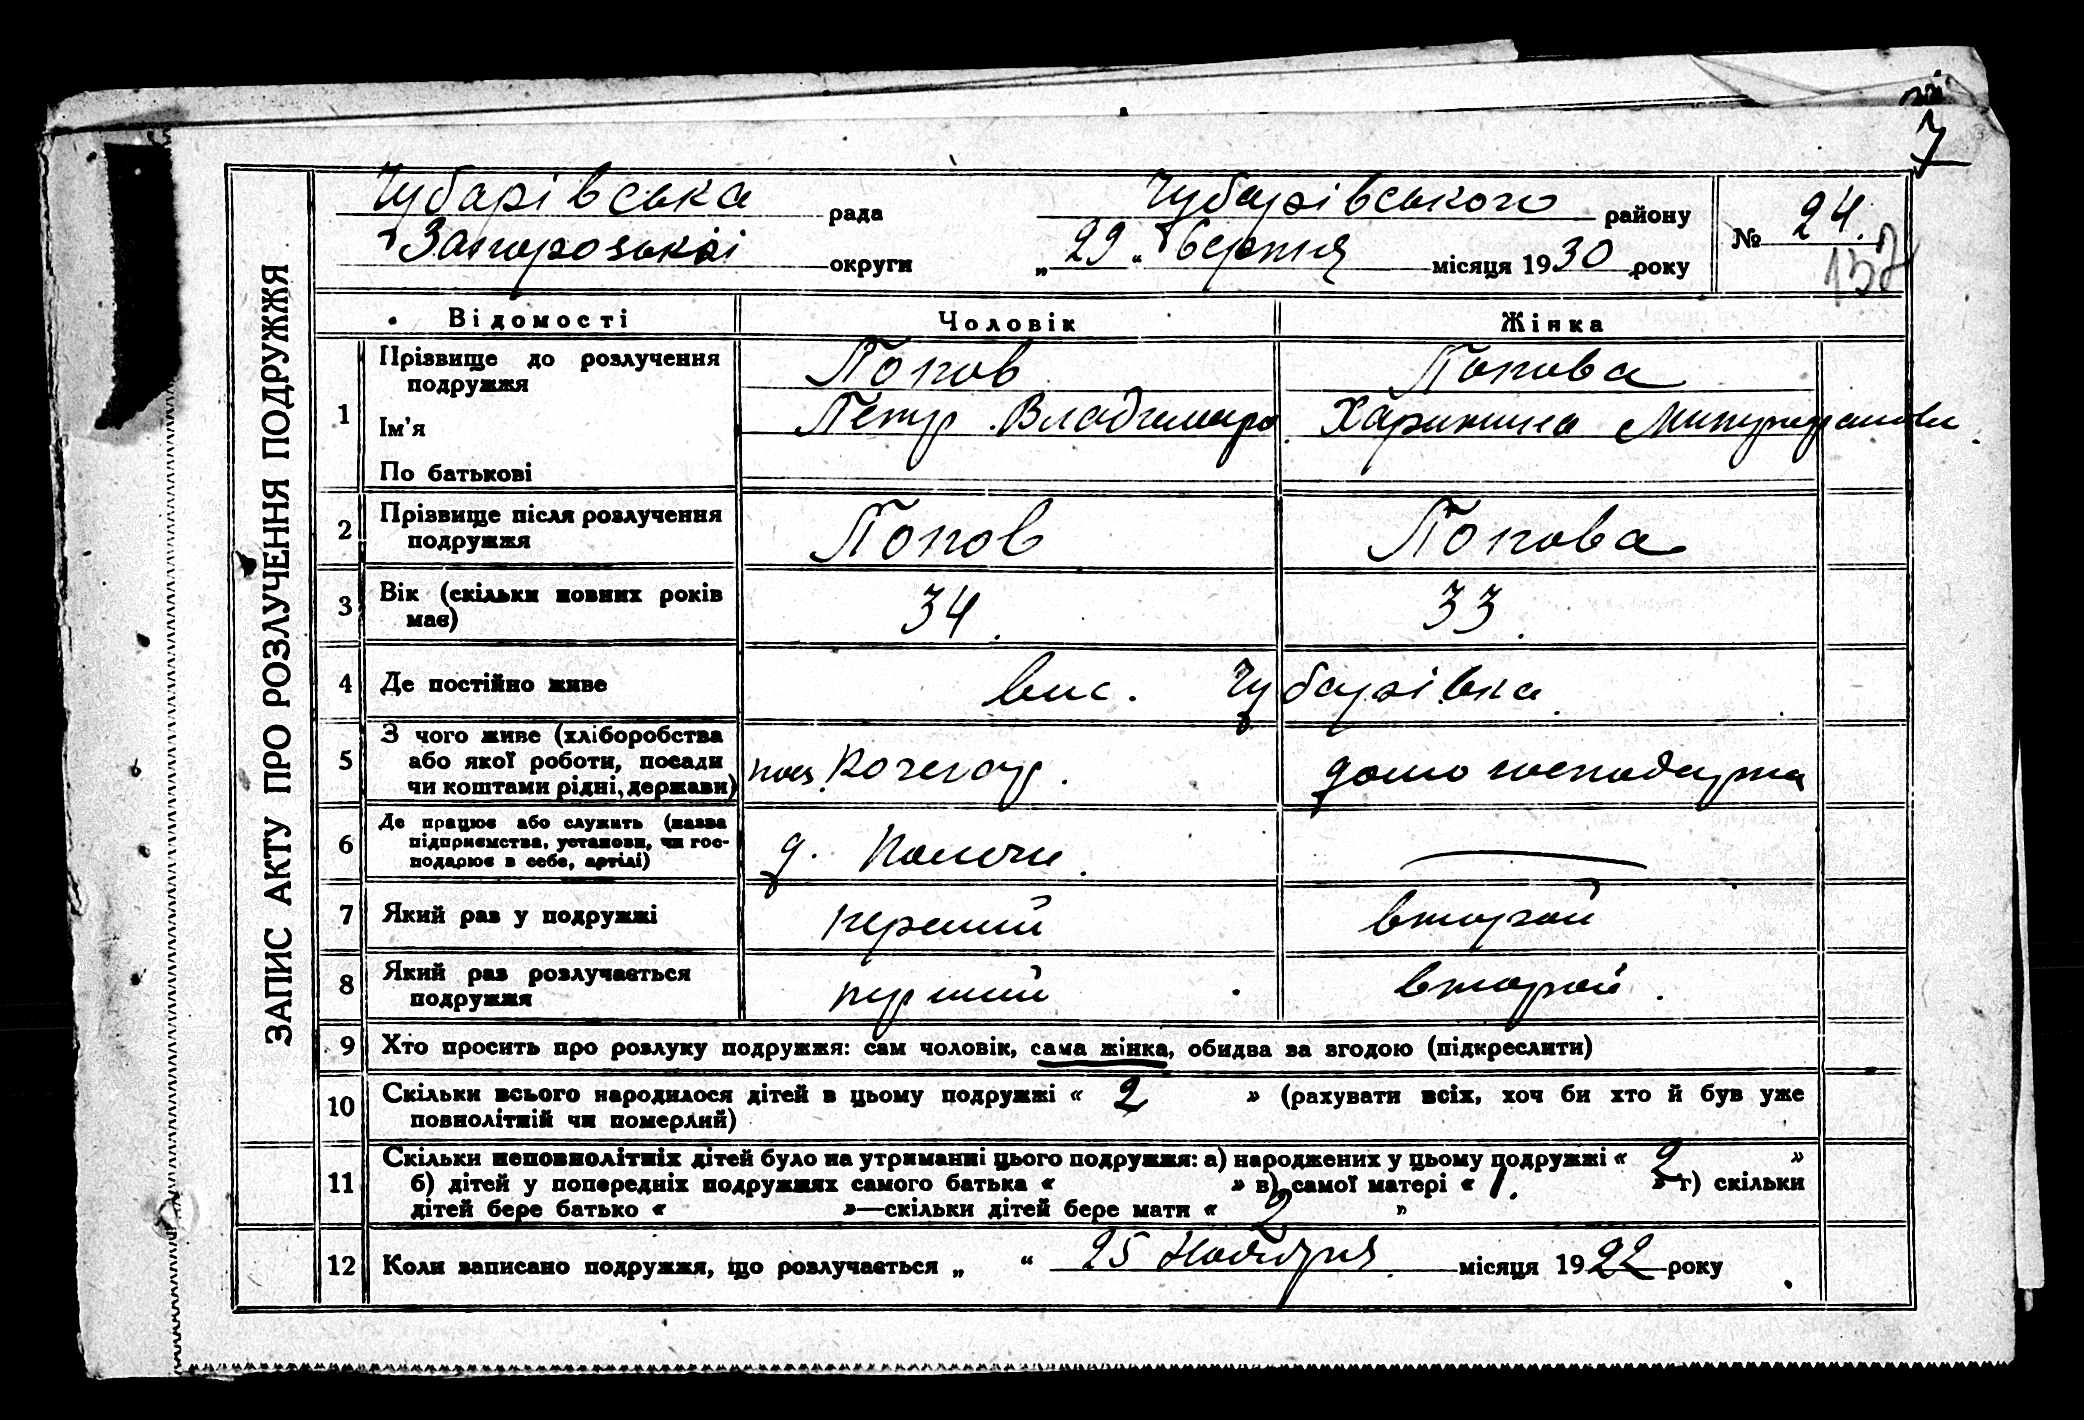 7
ЗАПИС АКТУ ПРО РОЗЛУЧЕННЯ ПОДРУЖЖЯ
Чубарівська рада Чубарівського району № 24.
Запорозької округи „ 29 “ берпня місяця 1930 року
157
Відомості Чоловік Жінка
1 Прізвище до розлучення Попов Попова
подружжя
Ім'я Петр Владимиро.
По батькові
2 Прізвище після розлучення Попов Попова
подружжя
3 Вік (скільки повних років 34. 33.
має)
4 Де постійно живе вис. Чубарівка.
5 З чого живе (хліборобства
або якої роботи, посади Кочегар. домогосподарка
чи коштами рідні, держави)
6 Де працює або служить (назва
підприємства, установи, чи гос- д. —
подарює в себе, артілі)
7 Який раз у подружжі первий второй
8 Який раз розлучається перший второй.
подружжя
9 Хто просить про розлуку подружжя: сам чоловік, сама жінка, обидва за згодою (підкреслити)
10 Скільки всього народилося дітей в цьому подружжі « 2 » (рахувати всіх, хоч би хто й був уже
повнолітній чи померлий)
11 Скільки неповнолітніх дітей було на утриманні цього подружжя: а) народжених у цьому подружжі « 2 »
б) дітей у попередніх подружжях самого батька « » в) самої матері « 1. » г) скільки
дітей бере батько « »—скільки дітей бере мати « 2 »
12 Коли записано подружжя, що розлучається „ “ 25 Ноября місяця 1922 року